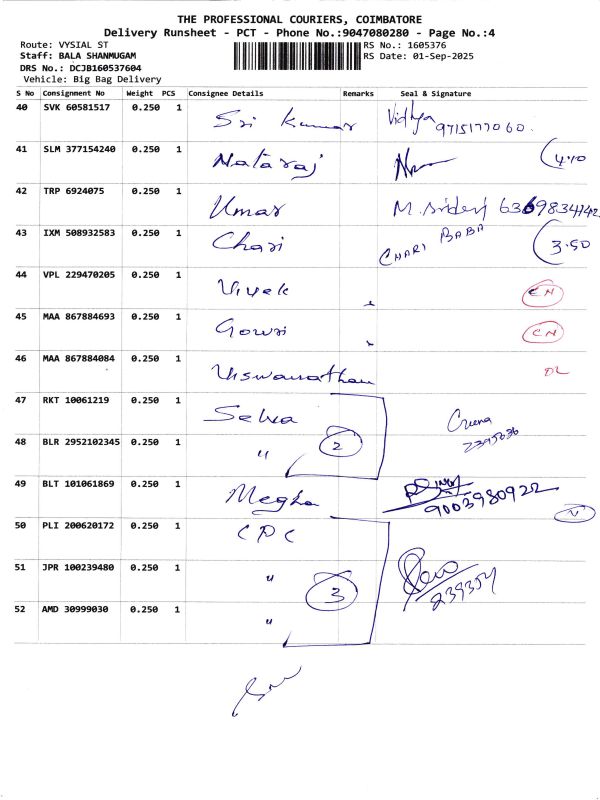 THE PROFESSIONAL COURIERS, COIMBATORE
Delivery Runsheet - PCT - Phone No.:9047080280 - Page No.:4
Route: VYSIAL ST
RS No.: 1605376
Staff: BALA SHANMUGAM
RS Date: 01-Sep-2025
DRS No.: DCJB160537604
Vehicle: Big Bag Delivery
S No Consignment No Weight PCS Consignee Details Remarks Seal & Signature
40 SVK 60581517 0.250 1 Sri Kumar Vidhya 9715177060.
41 SLM 377154240 0.250 1 Nataraj 4.10
42 TRP 6924075 0.250 1 Umar M.
43 IXM 508932583 0.250 1 Chari CHARI BABA 3.50
44 VPL 229470205 0.250 1 Vivek CN
45 MAA 867884693 0.250 1 Gowri CN
46 MAA 867884084 0.250 1 Viswanathan DL
47 RKT 10061219 0.250 1 Selva
48 BLR 2952102345 0.250 1 " 2
49 BLT 101061869 0.250 1 Megha 9003980922
50 PLI 200620172 0.250 1 CPC
51 JPR 100239480 0.250 1 " 3
52 AMD 30999030 0.250 1 "